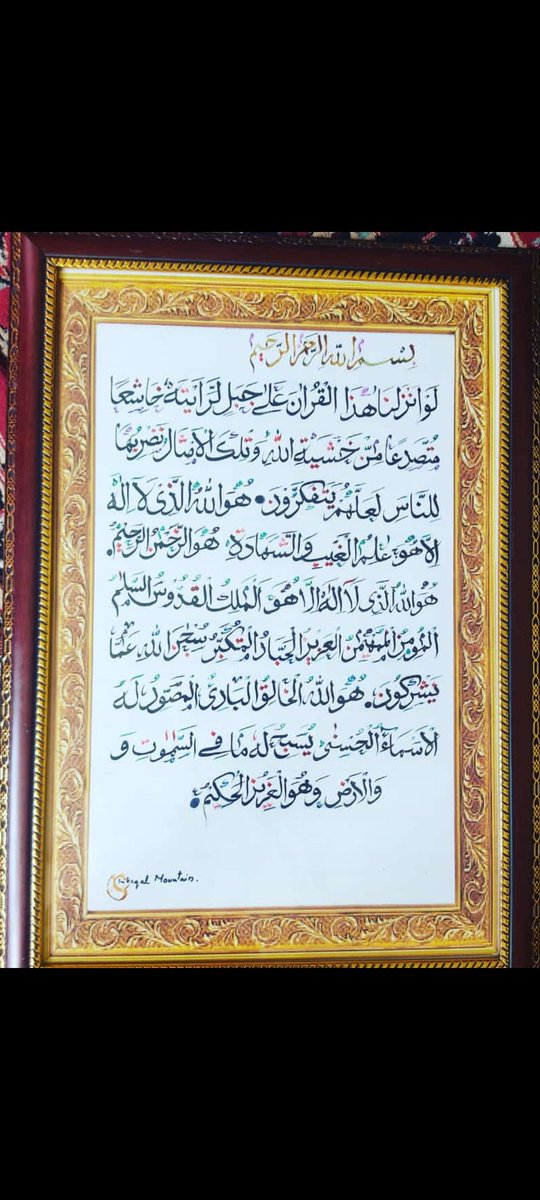 بسم الله الرحمن الرحيم
لَوْ اَنْزَلْنَا هٰذَا الْقُرْاٰنَ عَلٰى جَبَلٍ لَّرَاَيْتَهٗ خَاشِعًا
مُّتَصَدِّعًا مِّنْ خَشْيَةِ اللّٰهِ وَتِلْكَ الْاَمْثَالُ نَضْرِبُهَا
لِلنَّاسِ لَعَلَّهُمْ يَتَفَكَّرُوْنَ۔ هُوَ اللّٰهُ الَّذِىْ لَآ اِلٰهَ
اِلَّا هُوَ عٰلِمُ الْغَيْبِ وَالشَّهَادَةِ هُوَ الرَّحْمٰنُ الرَّحِيْمُ۔
هُوَ اللّٰهُ الَّذِىْ لَآ اِلٰهَ اِلَّا هُوَ اَلْمَلِكُ الْقُدُّوْسُ السَّلٰمُ
الْمُؤْمِنُ الْمُهَيْمِنُ الْعَزِيْزُ الْجَبَّارُ الْمُتَكَبِّرُ سُبْحٰنَ اللّٰهِ عَمَّا
يُشْرِكُوْنَ۔ هُوَ اللّٰهُ الْخَالِقُ الْبَارِئُ الْمُصَوِّرُ لَهُ
الْاَسْمَاءُ الْحُسْنٰى يُسَبِّحُ لَهٗ مَا فِى السَّمٰوٰتِ وَ
وَالْاَرْضِ وَهُوَ الْعَزِيْزُ الْحَكِيْمُ۔
Mountain.